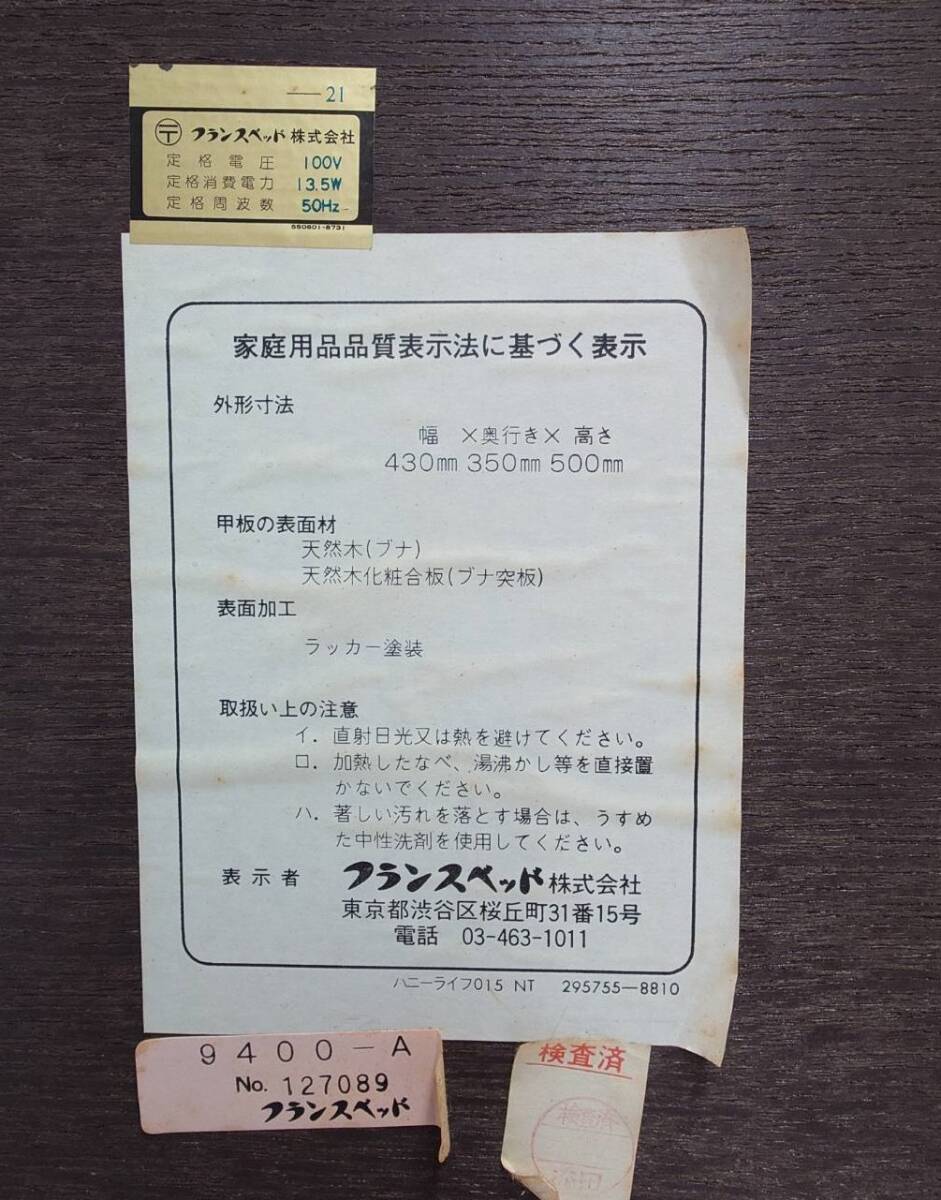 —21
〒 フランスベッド 株式会社
定格電圧 100V
定格消費電力 13.5W
定格周波数 50Hz
550601-8731
家庭用品品質表示法に基づく表示
外形寸法
幅 ×奥行き× 高さ
430mm 350mm 500mm
甲板の表面材
天然木(ブナ)
天然木化粧合板(ブナ突板)
表面加工
ラッカー塗装
取扱い上の注意
イ. 直射日光又は熱を避けてください。
ロ. 加熱したなべ、湯沸かし等を直接置
かないでください。
ハ. 著しい汚れを落とす場合は、うすめ
た中性洗剤を使用してください。
表示者 フランスベッド 株式会社
東京都渋谷区桜丘町31番15号
電話 03-463-1011
ハニーライフ015 NT 295755—8810
9400—A
No. 127089
フランスベッド
検査済
検査済